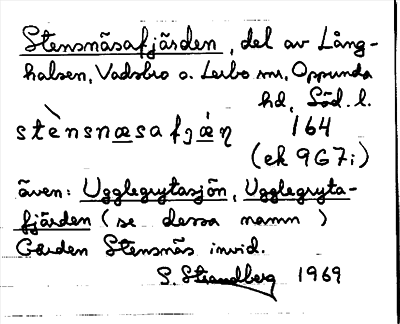 Stensnäsafjärden, del av Lång-
halsen, Vadsbro o. Lerbo snr, Oppunda
hd, Söd. l.
stènsnæsa fjæ̀ṇ 164
(ek 9G7i)
även: Ugglegrytasjön, Ugglegryta-
fjärden (se dessa namn)
Gården Stensnäs invid.
S. Strandberg 1969